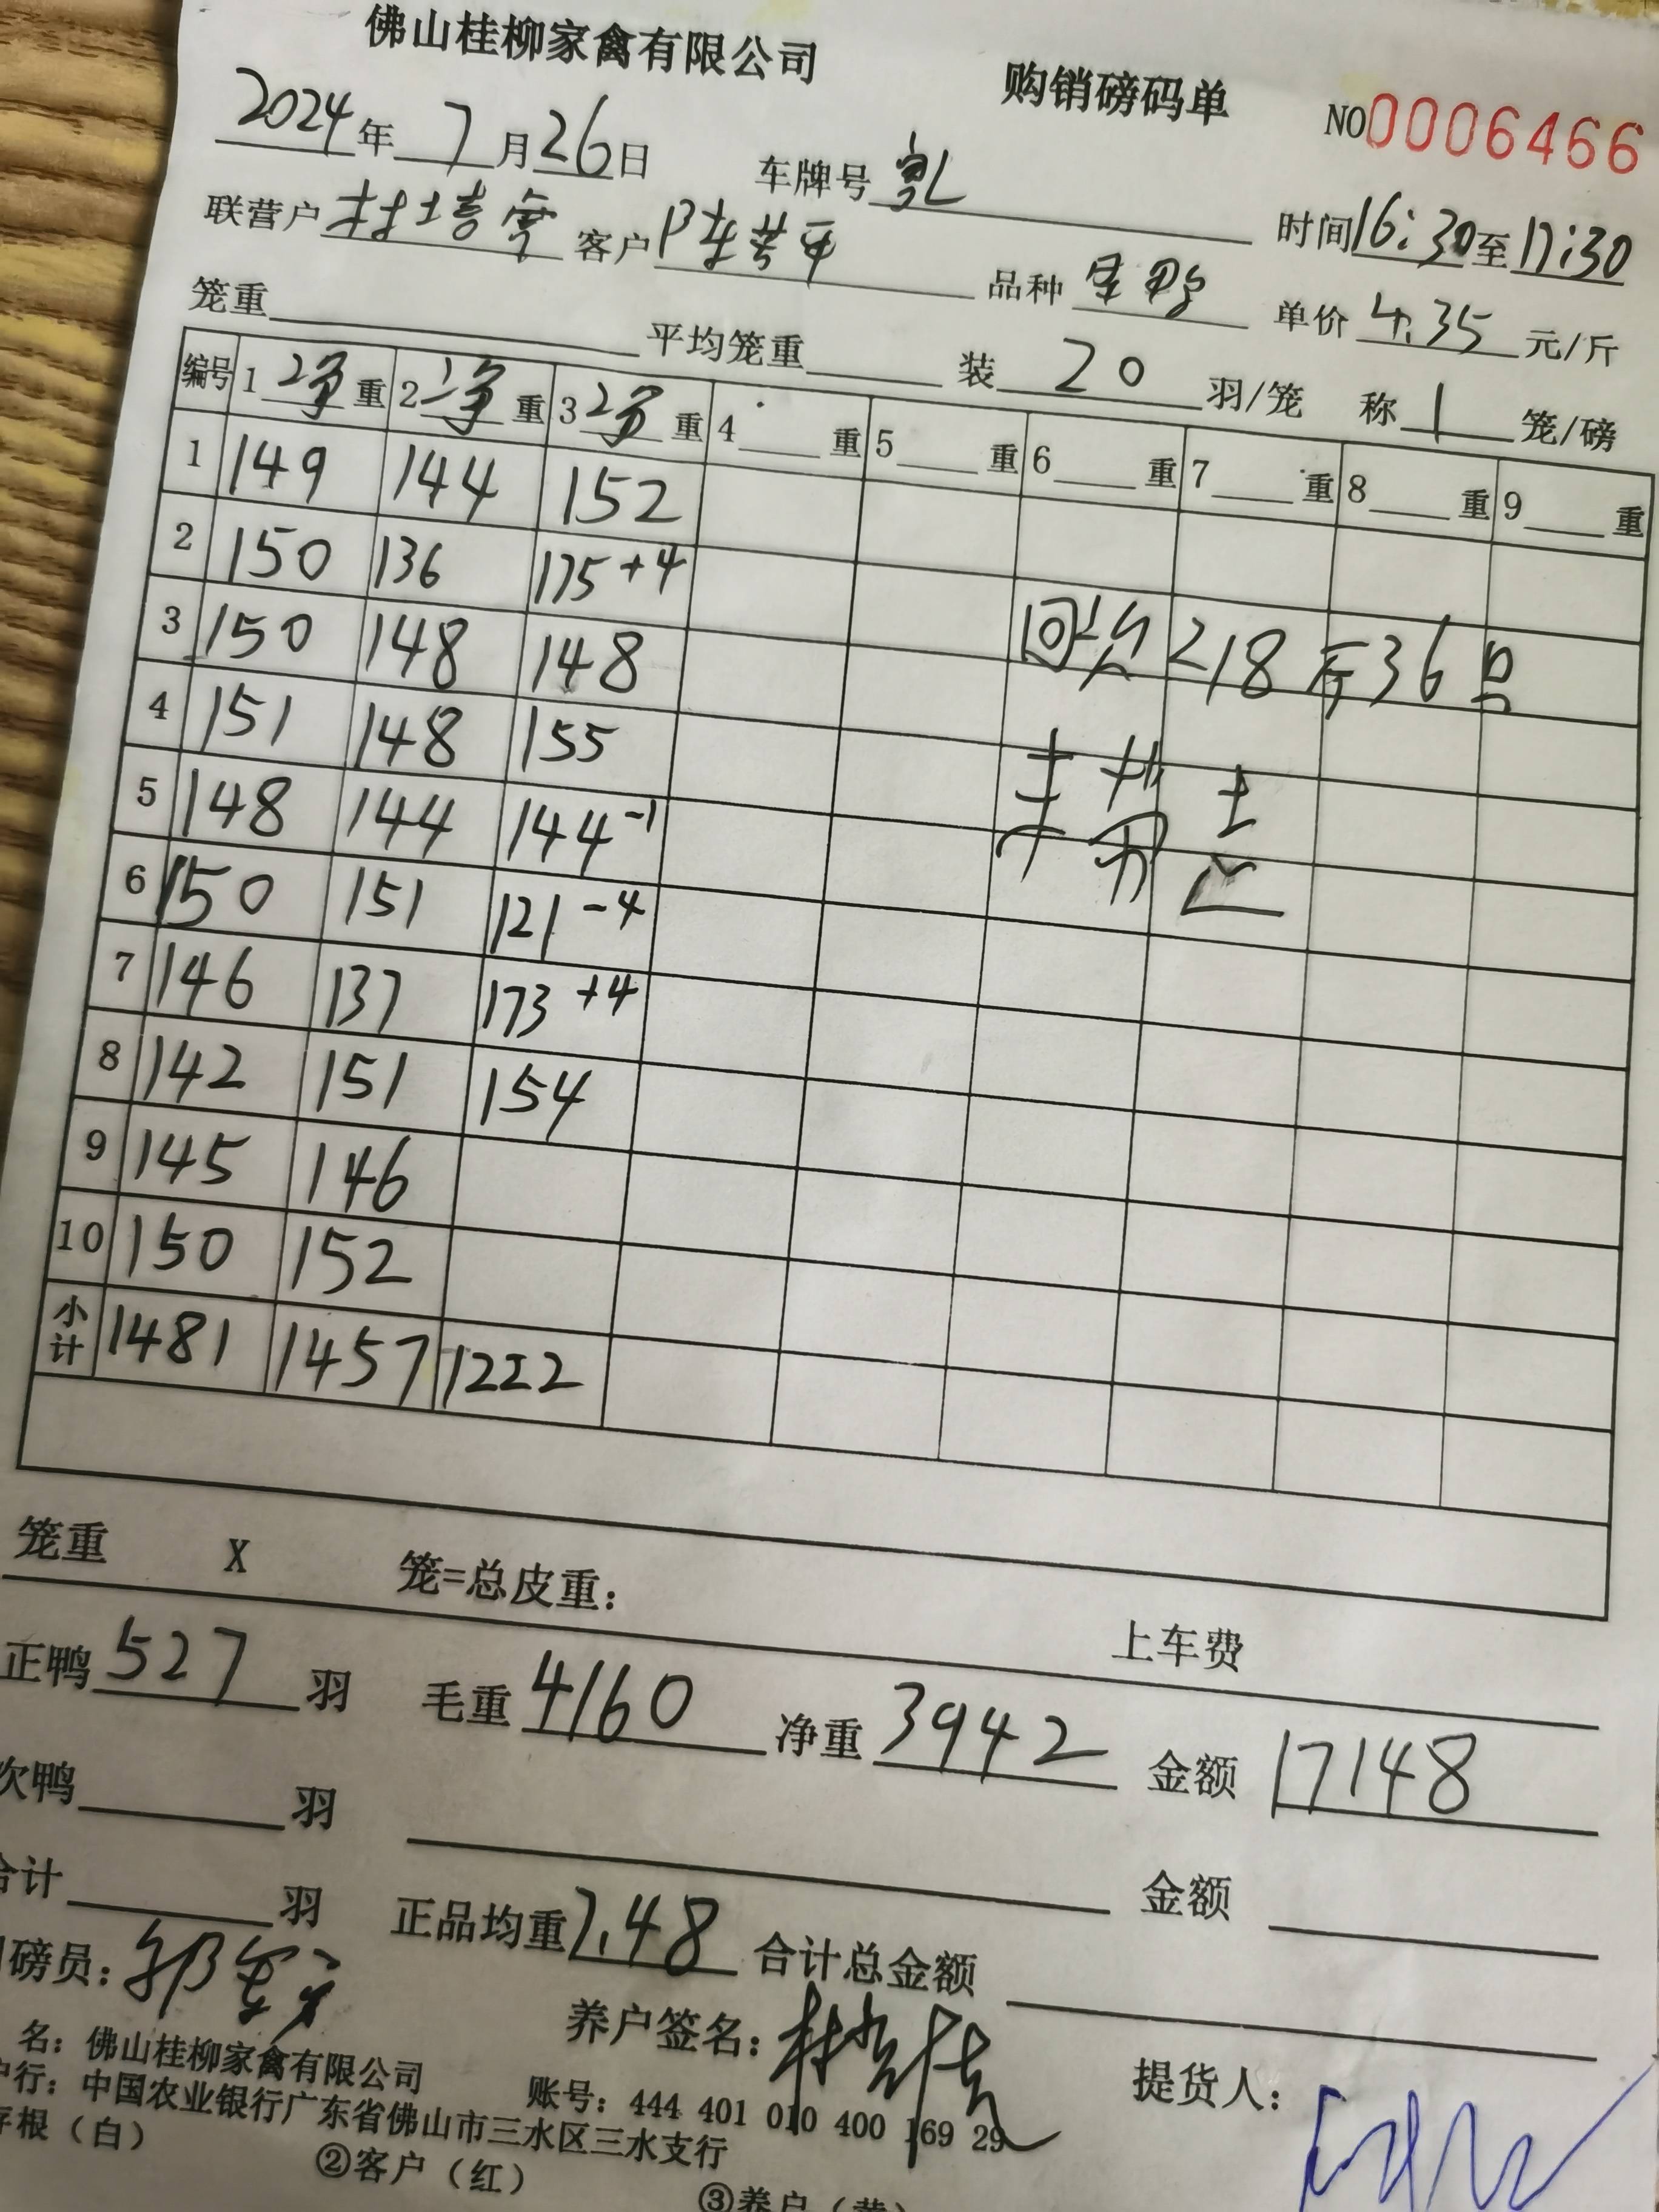 佛山桂柳家禽有限公司 购销磅码单 NO0006466
2024年7月26日 车牌号
时间16:30至17:30
联营户 林培 客户 陈 平 品种 鸭 单价 4.35 元/斤
笼重 平均笼重 装 20 羽/笼 称 1 笼/磅
编号 1 净重 2 净重 3 净重 4 重 5 重 6 重 7 重 8 重 9 重
1 149 144 152
2 150 136 175+4
3 150 148 148 回 218斤36只
4 151 148 155
5 148 144 144-1
6 150 151 121-4
7 146 137 173+4
8 142 151 154
9 145 146
10 150 152
小计 1481 1457 1222
笼重 X 笼=总皮重:
上车费
正鸭 527 羽 毛重 4160 净重 3942 金额 17148
次鸭 羽 金额
合计 羽 正品均重 7.48 合计总金额
磅员: 养户签名: 提货人:
名: 佛山桂柳家禽有限公司 账号: 444 401 010 400 169 29
户行: 中国农业银行广东省佛山市三水区三水支行
存根(白) ②客户(红) ③养户(黄)